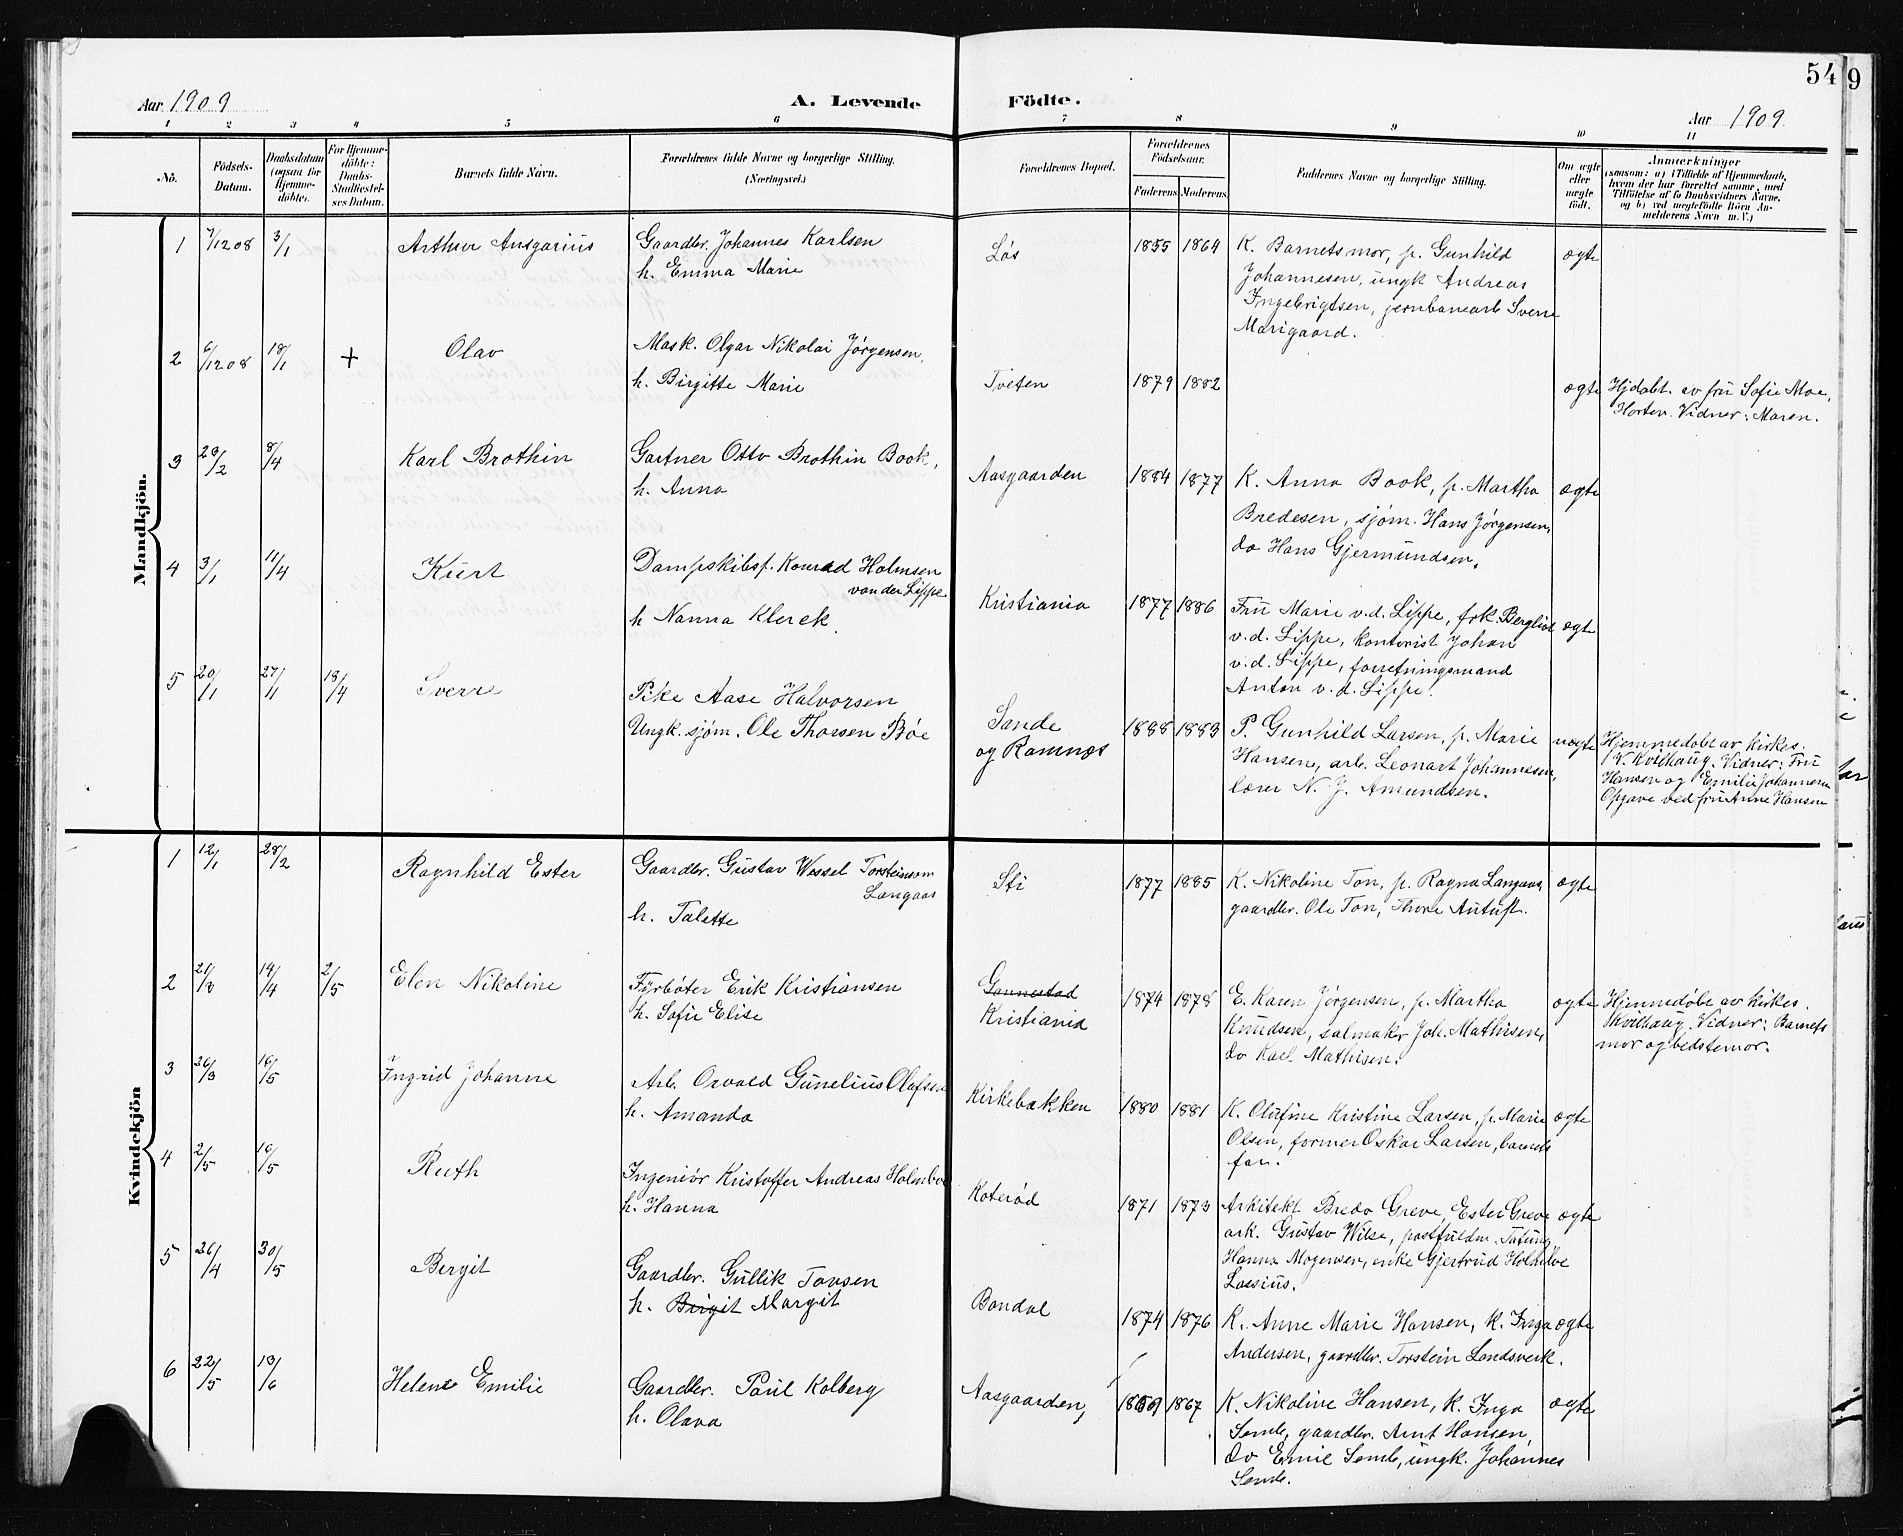 54
9
Aar 1909
A. Levende
Födte.
Aar 1909.
1 2 3 4 5 6 7 8 9 10 11
No.
Födsels-
Datum.
Daabsdatum
(ogsaa for
Hjemme-
döbte).
For Hjemme-
döbte:
Daabs-
Stadfæstel-
ses Datum.
Barnets fulde Navn.
Forældrenes fulde Navne og borgerlige Stilling.
(Næringsvei.)
Forældrenes Bopæl.
Forældrenes
Födselsaar.
Faderens Moderens
Faddernes Navne og borgerlige Stilling.
Om ægte
eller
uægte
födt.
Anmærkninger
(saasom: a) i Tilfælde af Hjemmedaab,
hvem der har forrettet samme, med
Tilföielse af to Daabsvidners Navne,
og b) ved uægtefödte Börn An-
melderens Navn m. V.)
Mandkjön.
1 7/12 08 3/1 Arthur Ansgarius
Gaardbr. Johannes Karlsen
h. Emma Marie
Løs 1855 1864
K. Barnets mor, p. Gunhild
Johannesen, ungk Andreas
Ingebrigtsen, jernbanearb Sverre
Marigaard.
ægte
2 6/12 08 18/1 + Olav
Mask. Olgar Nikolai Jørgensen,
h. Birgitte Marie
Tveten 1879 1882
ægte
Hjdøbt. av fru Sofie Moe,
Horten. Vidner: Maren.
3 20/2 8/4 Karl Brothin
Gartner Otto Brothin Book,
h. Anna
Aasgaarden 1884 1877
K. Anna Book, p. Martha
Bredesen, sjøm. Hans Jørgensen,
do Hans Gjermundsen.
ægte
4 3/1 11/4 Kurt
Dampskibsf. Konrad Holmsen
van der Lippe
h Nanna Klerck.
Kristiania 1877 1886
Fru Marie v.d. Lippe, frk. Bergliot
v.d. Lippe, kontorist Johan
v.d. Lippe, forretningsmand
Anton v.d. Lippe.
ægte
5 20/1 27/1 18/4 Sverre
Pike Aase Halvorsen
Ungk. sjøm. Ole Thorsen Bøe
Sande
og Ramnæs
1888 1883
P. Gunhild Larsen, p. Marie
Hansen, arb. Leonart Johannesen,
lærer N. J. Amundsen.
uægte
Hjemmedøbt av kirkes.
V. Kvilhaug. Vidner: Fru
Hansen og Emilie Johannesen
Opgave ved fru Anne Hansen
Kvindekjön
1 12/1 28/2 Ragnhild Ester
Gaardbr. Gustav Wessel Torsteinson
Langaas
h. Talette
Sti 1877 1885
K. Nikoline Ton, p. Ragna Langaas,
gaardbr. Ole Ton, Thore
ægte
2 21/3 14/4 2/5 Elen Nikoline
Fyrbøter Erik Kristiansen
h. Sofie Elise
Gannestad
Kristiania
1874 1878
E. Karen Jørgensen, p. Martha
Knudsen, salmaker Joh. Mathisen,
do Karl Mathisen.
ægte
Hjemmedøbt av kirkes.
Kvilhaug. Vidner: Barnets
mor og bedstemor.
3 26/3 16/5 Ingrid Johanne
Arb. Osvald Gunelius Olafsen
h. Amanda
Kirkebakken 1880 1881
K. Olufine Kristine Larsen, p. Marie
Olsen, former Oskar Larsen, barnets
far.
ægte
4 2/5 16/5 Ruth
Ingeniør Kristoffer Andreas Holmboe
h. Hanna
Koterød 1871 1873
Arkitekt Bredo Greve, Ester Greve
ark. Gustav Wilse, postfuldm.
Hanna Mogensen, enke Gjertrud Holmboe
Lassius.
ægte
5 26/4 30/5 Bergit
Gaardbr. Gullik Tovsen
h. Birgit Margit
Bondal 1874 1876
K. Anne Marie Hansen, k. Inga
Andersen, gaardbr. Torstein Landsverk.
ægte
6 22/5 13/6 Helene Emilie
Gaardbr. Paul Kolberg
h. Olava
Aasgaarden, 1869 1867
K. Nikoline Hansen, k. Inga
Semb, gaardbr. Arnt Hansen,
do Emil Semb, ungk. Johannes
Semb.
ægte